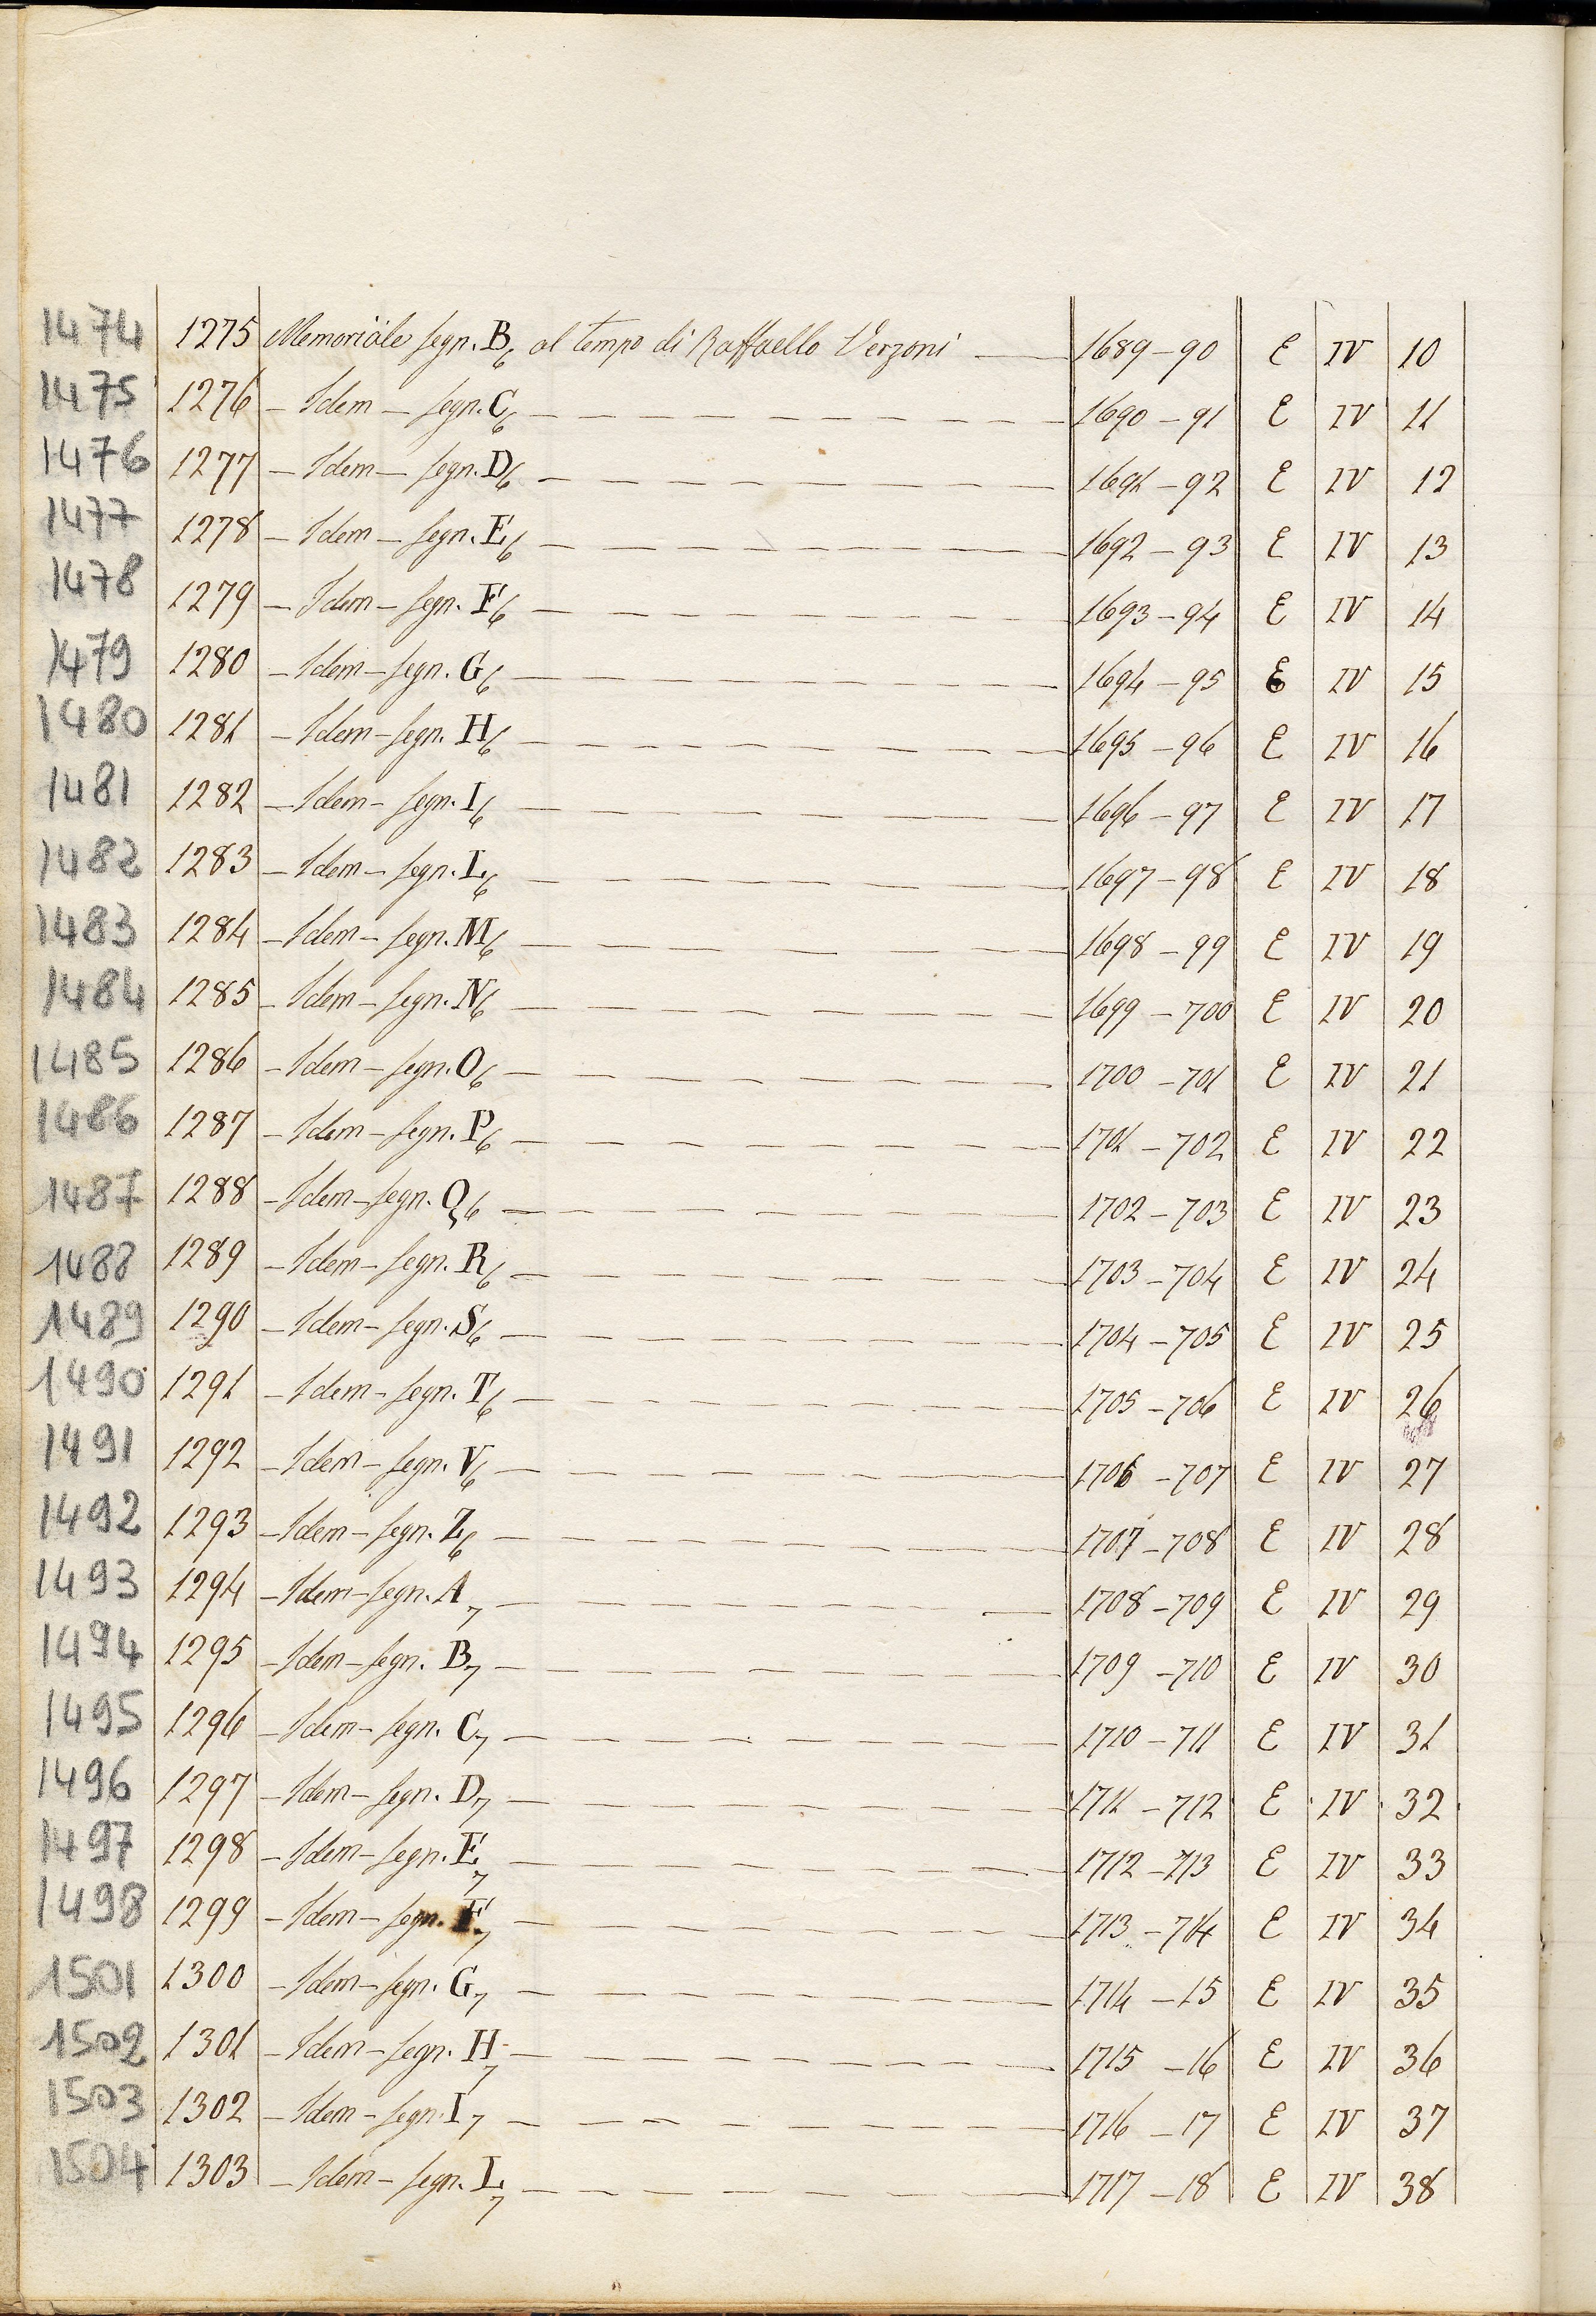 1474 1275 Memoriale segn. B6 al tempo di Raffaello Verzoni — 1689-90 E IV 10
1475 1276 — Idem — segn. C6 — 1690-91 E IV 11
1476 1277 — Idem — segn. D6 — 1691-92 E IV 12
1477 1278 — Idem — segn. E6 — 1692-93 E IV 13
1478 1279 — Idem — segn. F6 — 1693-94 E IV 14
1479 1280 — Idem — segn. G6 — 1694-95 E IV 15
1480 1281 — Idem — segn. H6 — 1695-96 E IV 16
1481 1282 — Idem — segn. I6 — 1696-97 E IV 17
1482 1283 — Idem — segn. L6 — 1697-98 E IV 18
1483 1284 — Idem — segn. M6 — 1698-99 E IV 19
1484 1285 — Idem — segn. N6 — 1699-700 E IV 20
1485 1286 — Idem — segn. O6 — 1700-701 E IV 21
1486 1287 — Idem — segn. P6 — 1701-702 E IV 22
1487 1288 — Idem — segn. Q6 — 1702-703 E IV 23
1488 1289 — Idem — segn. R6 — 1703-704 E IV 24
1489 1290 — Idem — segn. S6 — 1704-705 E IV 25
1490 1291 — Idem — segn. T6 — 1705-706 E IV 26
1491 1292 — Idem — segn. V6 — 1706-707 E IV 27
1492 1293 — Idem — segn. Z6 — 1707-708 E IV 28
1493 1294 — Idem — segn. A7 — 1708-709 E IV 29
1494 1295 — Idem — segn. B7 — 1709-710 E IV 30
1495 1296 — Idem — segn. C7 — 1710-711 E IV 31
1496 1297 — Idem — segn. D7 — 1711-712 E IV 32
1497 1298 — Idem — segn. E7 — 1712-713 E IV 33
1498 1299 — Idem — segn. F7 — 1713-714 E IV 34
1501 1300 — Idem — segn. G7 — 1714-15 E IV 35
1502 1301 — Idem — segn. H7 — 1715-16 E IV 36
1503 1302 — Idem — segn. I7 — 1716-17 E IV 37
1504 1303 — Idem — segn. L7 — 1717-18 E IV 38